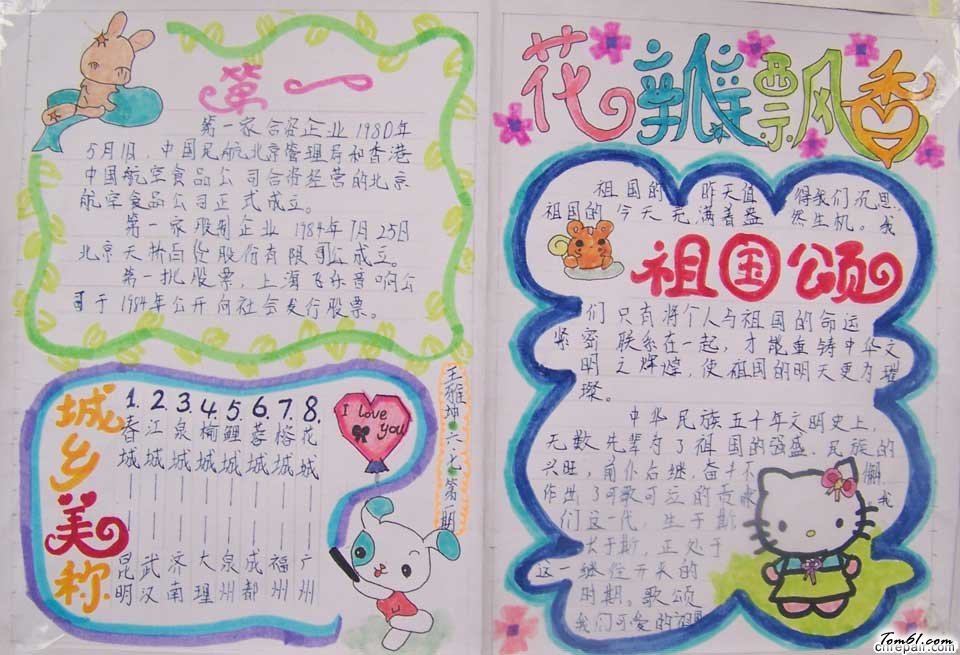 第一
第一家合资企业1980年
5月1日,中国民航北京管理局和香港
中国航空食品公司合资经营的北京
航空食品公司正式成立。
第一家股制企业1984年7月25日
北京天桥百货股份有限司公成立。
第一批股票,上海飞乐音响公
司于1984年公开向社会发行股票。
城乡美称
1.春城——昆明
2.江城——武汉
3.泉城——济南
4.榆城——大理
5.鲤城——泉州
6.蓉城——成都
7.榕城——福州
8.花城——广州
I love
you
王雅坤 六·九 第一期
花瓣飘香
祖国的 昨天值 得我们沉思
祖国的今天充满着盎 然生机。我
祖国颂
们只有将个人与祖国的命运
紧密联系在一起,才能重铸中华文
明之辉煌,使祖国的明天更为璀
璨。
中华民族五千年文明史上,
无数先辈为了祖国的强盛、民族的
兴旺,前仆后继,奋斗不 懈
作出了可歌可泣的贡献 。我
们这一代,生于斯
长于斯,正处于
这一继往开来的
时期。歌颂
我们可爱的祖国
Tom61.com
cnrepair.com